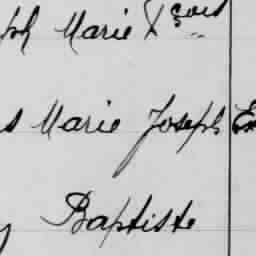 ph Marie Xçois
s Marie Joseph
y Baptiste